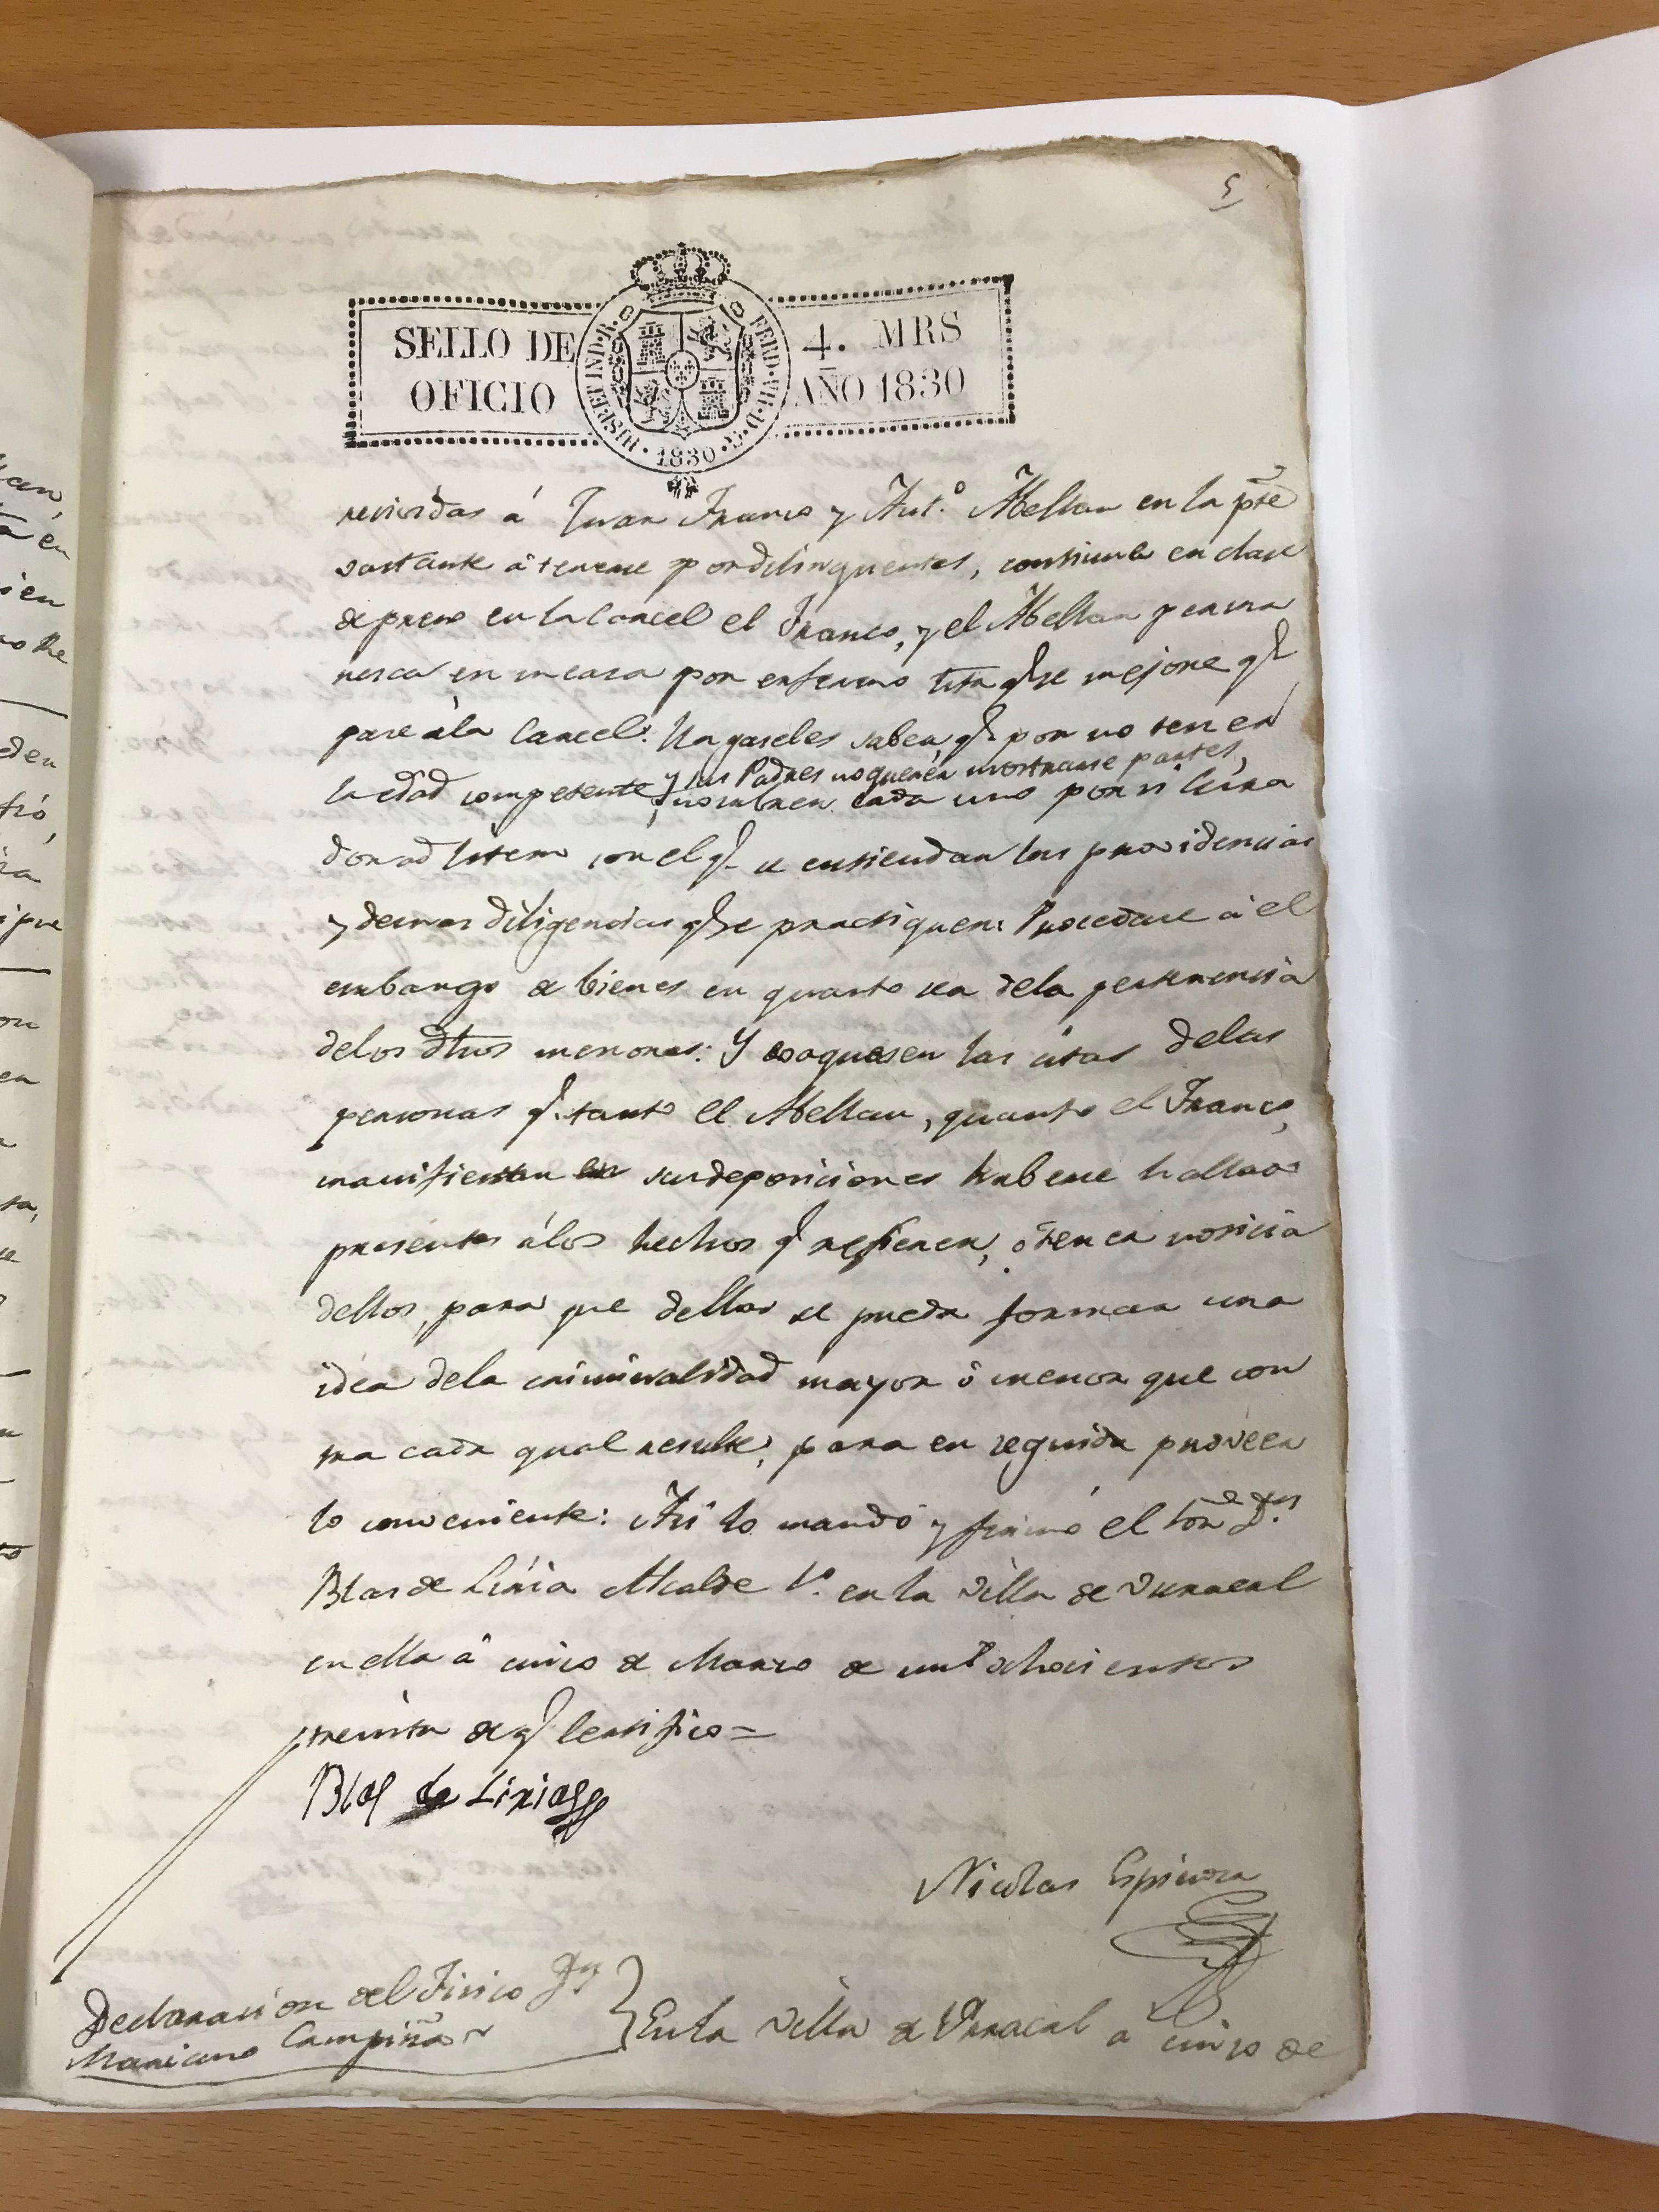 5
SELLO DE 4. MRS
OFICIO AÑO 1830
HISP. ET IND. R. FERD. VII. D. G. 1830
recividas á Juan Franco y Ant.º Abellan en la pre
vastante á tenerse por delinquentes, continue en clase
de preso en la Carcel el Franco, y el Abellan perma
nesca en su casa por enfermo hta q.e se mejore q.e
pase á la Carcel: Hagaseles saber q.e por no tener
la edad competente, y sus Padres no querer mostrarse partes,
nombren cada uno por si Cura
dor ad litem con el q.e se entiendan las providencias
y demas diligencias q.e se practiquen: Procedase á el
embargo de bienes en quanto sea dela pertenencia
delos dhos menores: Y evaquesen las citas delas
personas q.e tanto el Abellan, quanto el Franco,
manifiestan en sus deposiciones haberse hallado
presentes álos hechos q.e refieren, ó tener noticia
dellos, para que dellas se pueda formar una
idea dela criminalidad mayor ó menor que con
tra cada qual resulte, para en seguida proveer
lo conveniente: Asi lo mandó y firmó el Sor D.n
Blas de Liria Alcalde 1.º en la Villa de Puracal
en ella á cinco de Marzo de mil ochocientos
treinta de q.e Certifico =
Blas de Liria
Nicolas Espinosa
Declaracion del Fisico D.n
Mariano Campiña
En la Villa de Puracal a cinco de